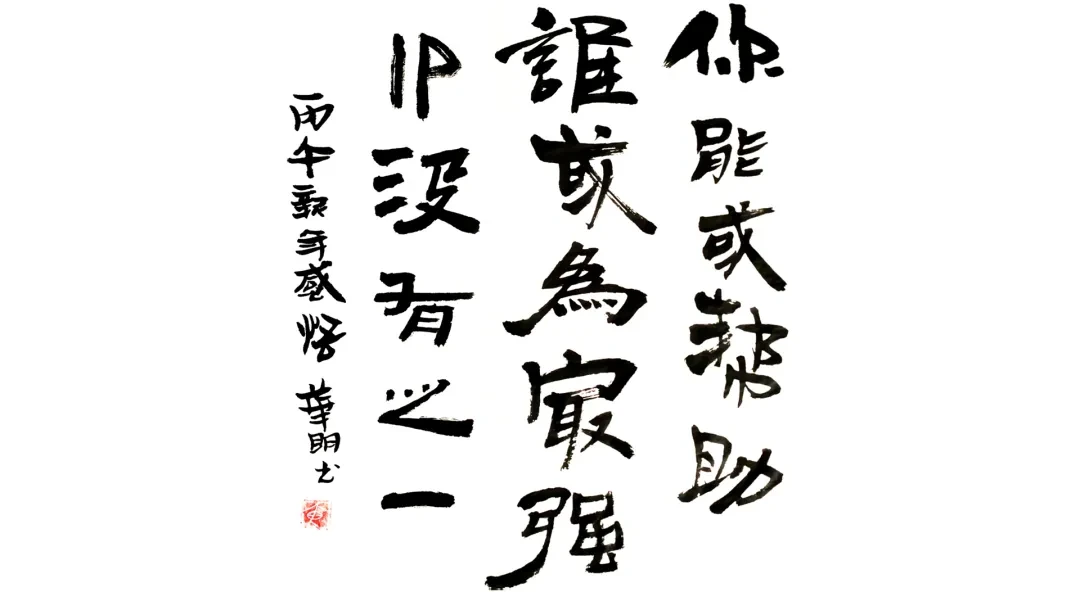 你能或幫助
誰或為最强
IP没有之一
丙午新年感悟 華明书